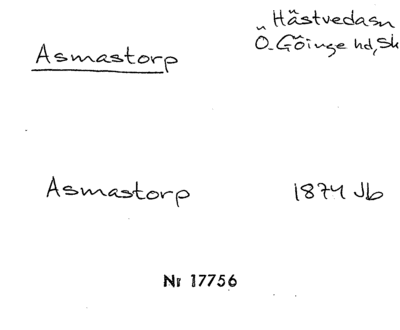 Hästvedasn
Asmastorp
Ö. Göinge hd, Sk
Asmastorp 1874 Jb
Nr 17756